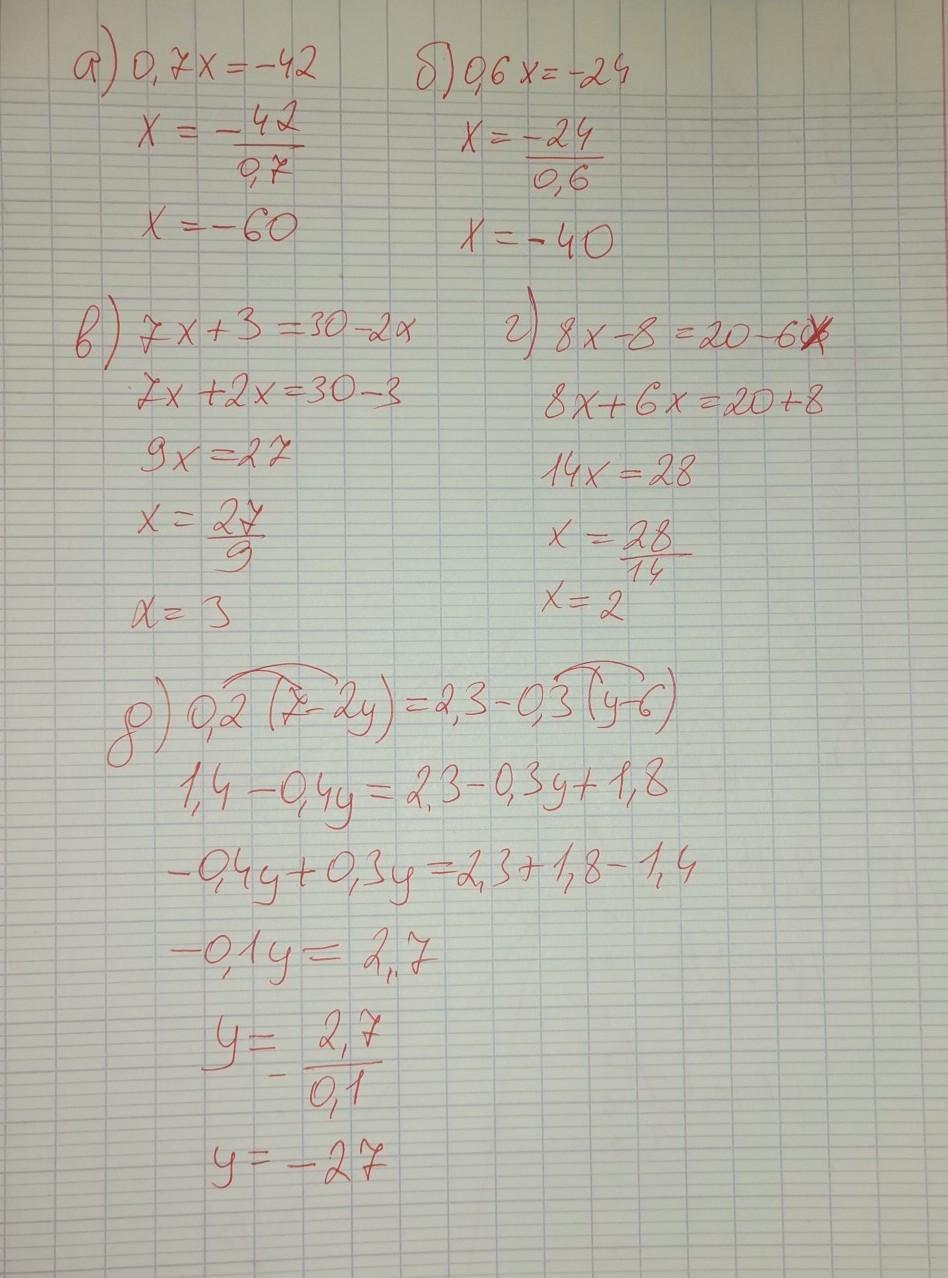 а) 0,7x = -42
x = -42/0,7
x = -60
б) 0,6x = -24
x = -24/0,6
x = -40
в) 7x + 3 = 30 - 2x
7x + 2x = 30 - 3
9x = 27
x = 27/9
x = 3
г) 8x - 8 = 20 - 6x
8x + 6x = 20 + 8
14x = 28
x = 28/14
x = 2
д) 0,2 (7 - 2y) = 2,3 - 0,3 (y - 6)
1,4 - 0,4y = 2,3 - 0,3y + 1,8
-0,4y + 0,3y = 2,3 + 1,8 - 1,4
-0,1y = 2,7
y = - 2,7/0,1
y = -27